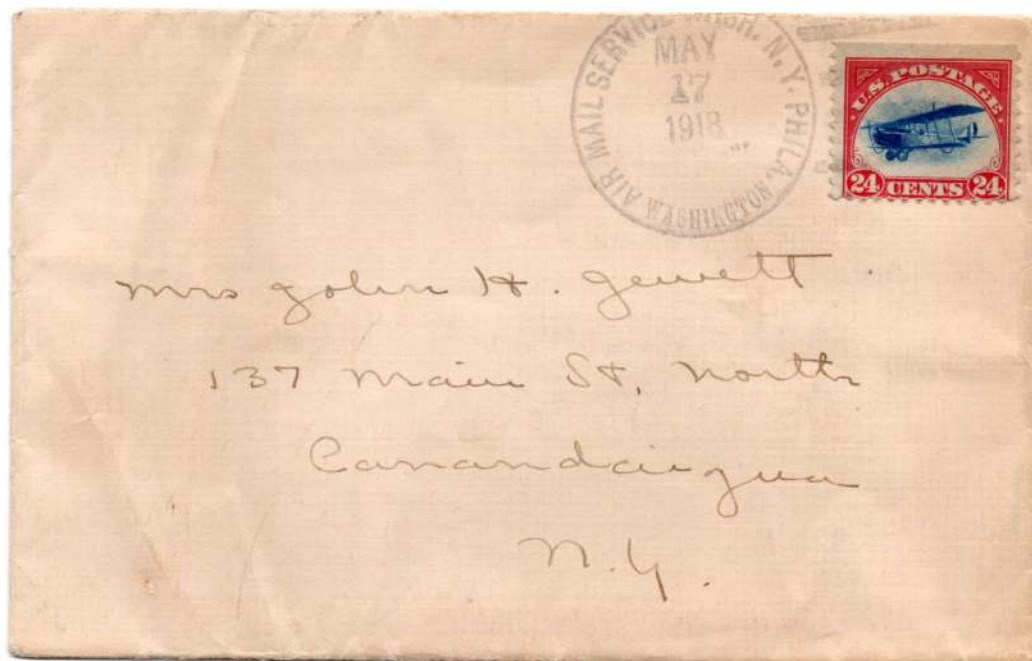 AIR MAIL SERVICE WASH. N.Y. PHILA.
MAY
17
1918
WASHINGTON
U.S. POSTAGE
24 CENTS 24
Mrs John H. Jewett
137 Main St. North
Canandaigua
N.Y.